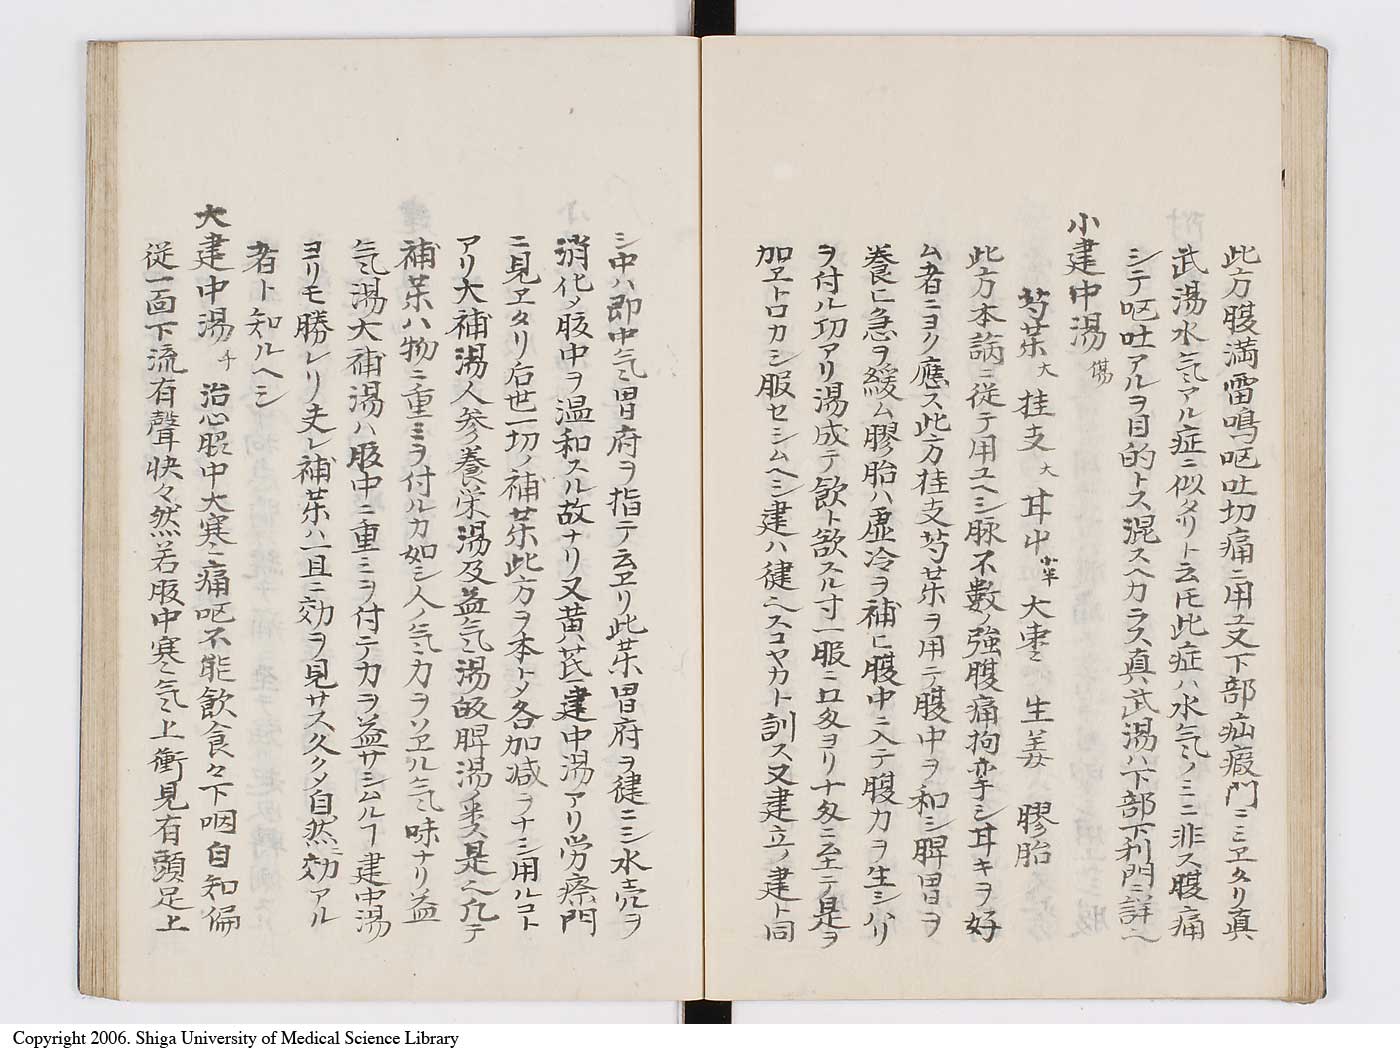 此方腹満雷鳴呕吐切痛ニ用ユ又下部疝瘕門ニミヱタリ真
武湯水気アル症ニ似タリト云𪜈此症ハ水気ノミニ非ス腹痛
シテ呕吐アルヲ目的トス混スヘカラス真武湯ハ下部下利門ニ詳ヘ
小建中湯 傷
芍薬大 桂支大 耳中 小半 大棗 小 生姜 膠胎
此方本論ニ従テ用ユヘシ脉不数ノ強腹痛拘挛シ耳キヲ好
ム者ニヨク應ス此方桂支芍薬ヲ用テ腹中ヲ和シ脾胃ヲ
養ヒ急ヲ緩ム膠胎ハ虚冷ヲ補ヒ腹中ニ入テ腹力ヲ生シ
ヲ付ル功アリ湯成テ飲ト欲スル寸一服ニ匁ヨリ十匁ニ至テ是ヲ
加ヱトロカシ服セシムヘシ建ハ健ヘスコヤカト訓ス又建立ノ建ト同
シ中ハ即中気胃府ヲ指テ云ヱリ此薬胃府ヲ健ニシ水壳ヲ
消化〆腹中ヲ温和スル故ナリ又黄芪建中湯アリ労瘵門
ニ見ヱタリ后世一切ノ補薬此方ヲ本ト〆各加减ヲナシ用ルコト
アリ大補湯人参養栄湯及益気湯皈脾湯ノ类是ヘ凢テ
補薬ハ物ニ重ミヲ付ルカ如シ人ノ気力ヲソヱル気味ナリ益
気湯大補湯ハ腹中ニ重ミヲ付テ力ヲ益サシムルヿ建中湯
ヨリモ勝レリ夫レ補薬ハ一旦ニ効ヲ見サス久ク〆自然ニ効アル
者ト知ルヘシ
大建中湯 千 治心腹中大寒痛呕不能飲食々下咽自知偏
従一面下流有聲快々然若腹中寒気上衝見有頭足上
Copyright 2006. Shiga University of Medical Science Library